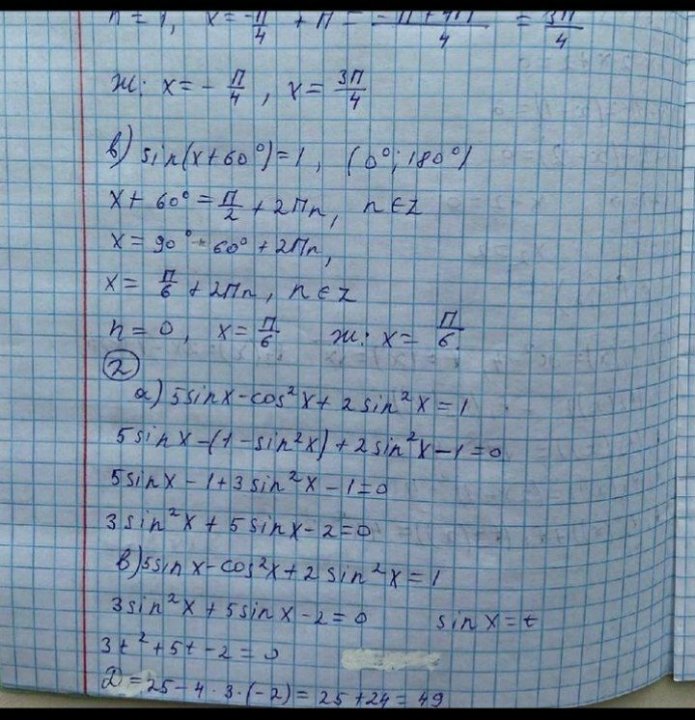 n = 1, x = -π/4 + π = (-π+4π)/4 = 3π/4
Ж: x = -π/4, x = 3π/4
в) sin(x+60°)=1, (0°; 180°)
x + 60° = π/2 + 2πn, n∈Z
x = 90° - 60° + 2πn,
x = π/6 + 2πn, n∈Z
n = 0, x = π/6 Ж: x = π/6
2
а) 5sinx - cos²x + 2sin²x = 1
5sinx - (1 - sin²x) + 2sin²x - 1 = 0
5sinx - 1 + 3sin²x - 1 = 0
3sin²x + 5sinx - 2 = 0
в) 5sinx - cos²x + 2sin²x = 1
3sin²x + 5sinx - 2 = 0 sinx = t
3t² + 5t - 2 = 0
D = 25 - 4·3·(-2) = 25 + 24 = 49